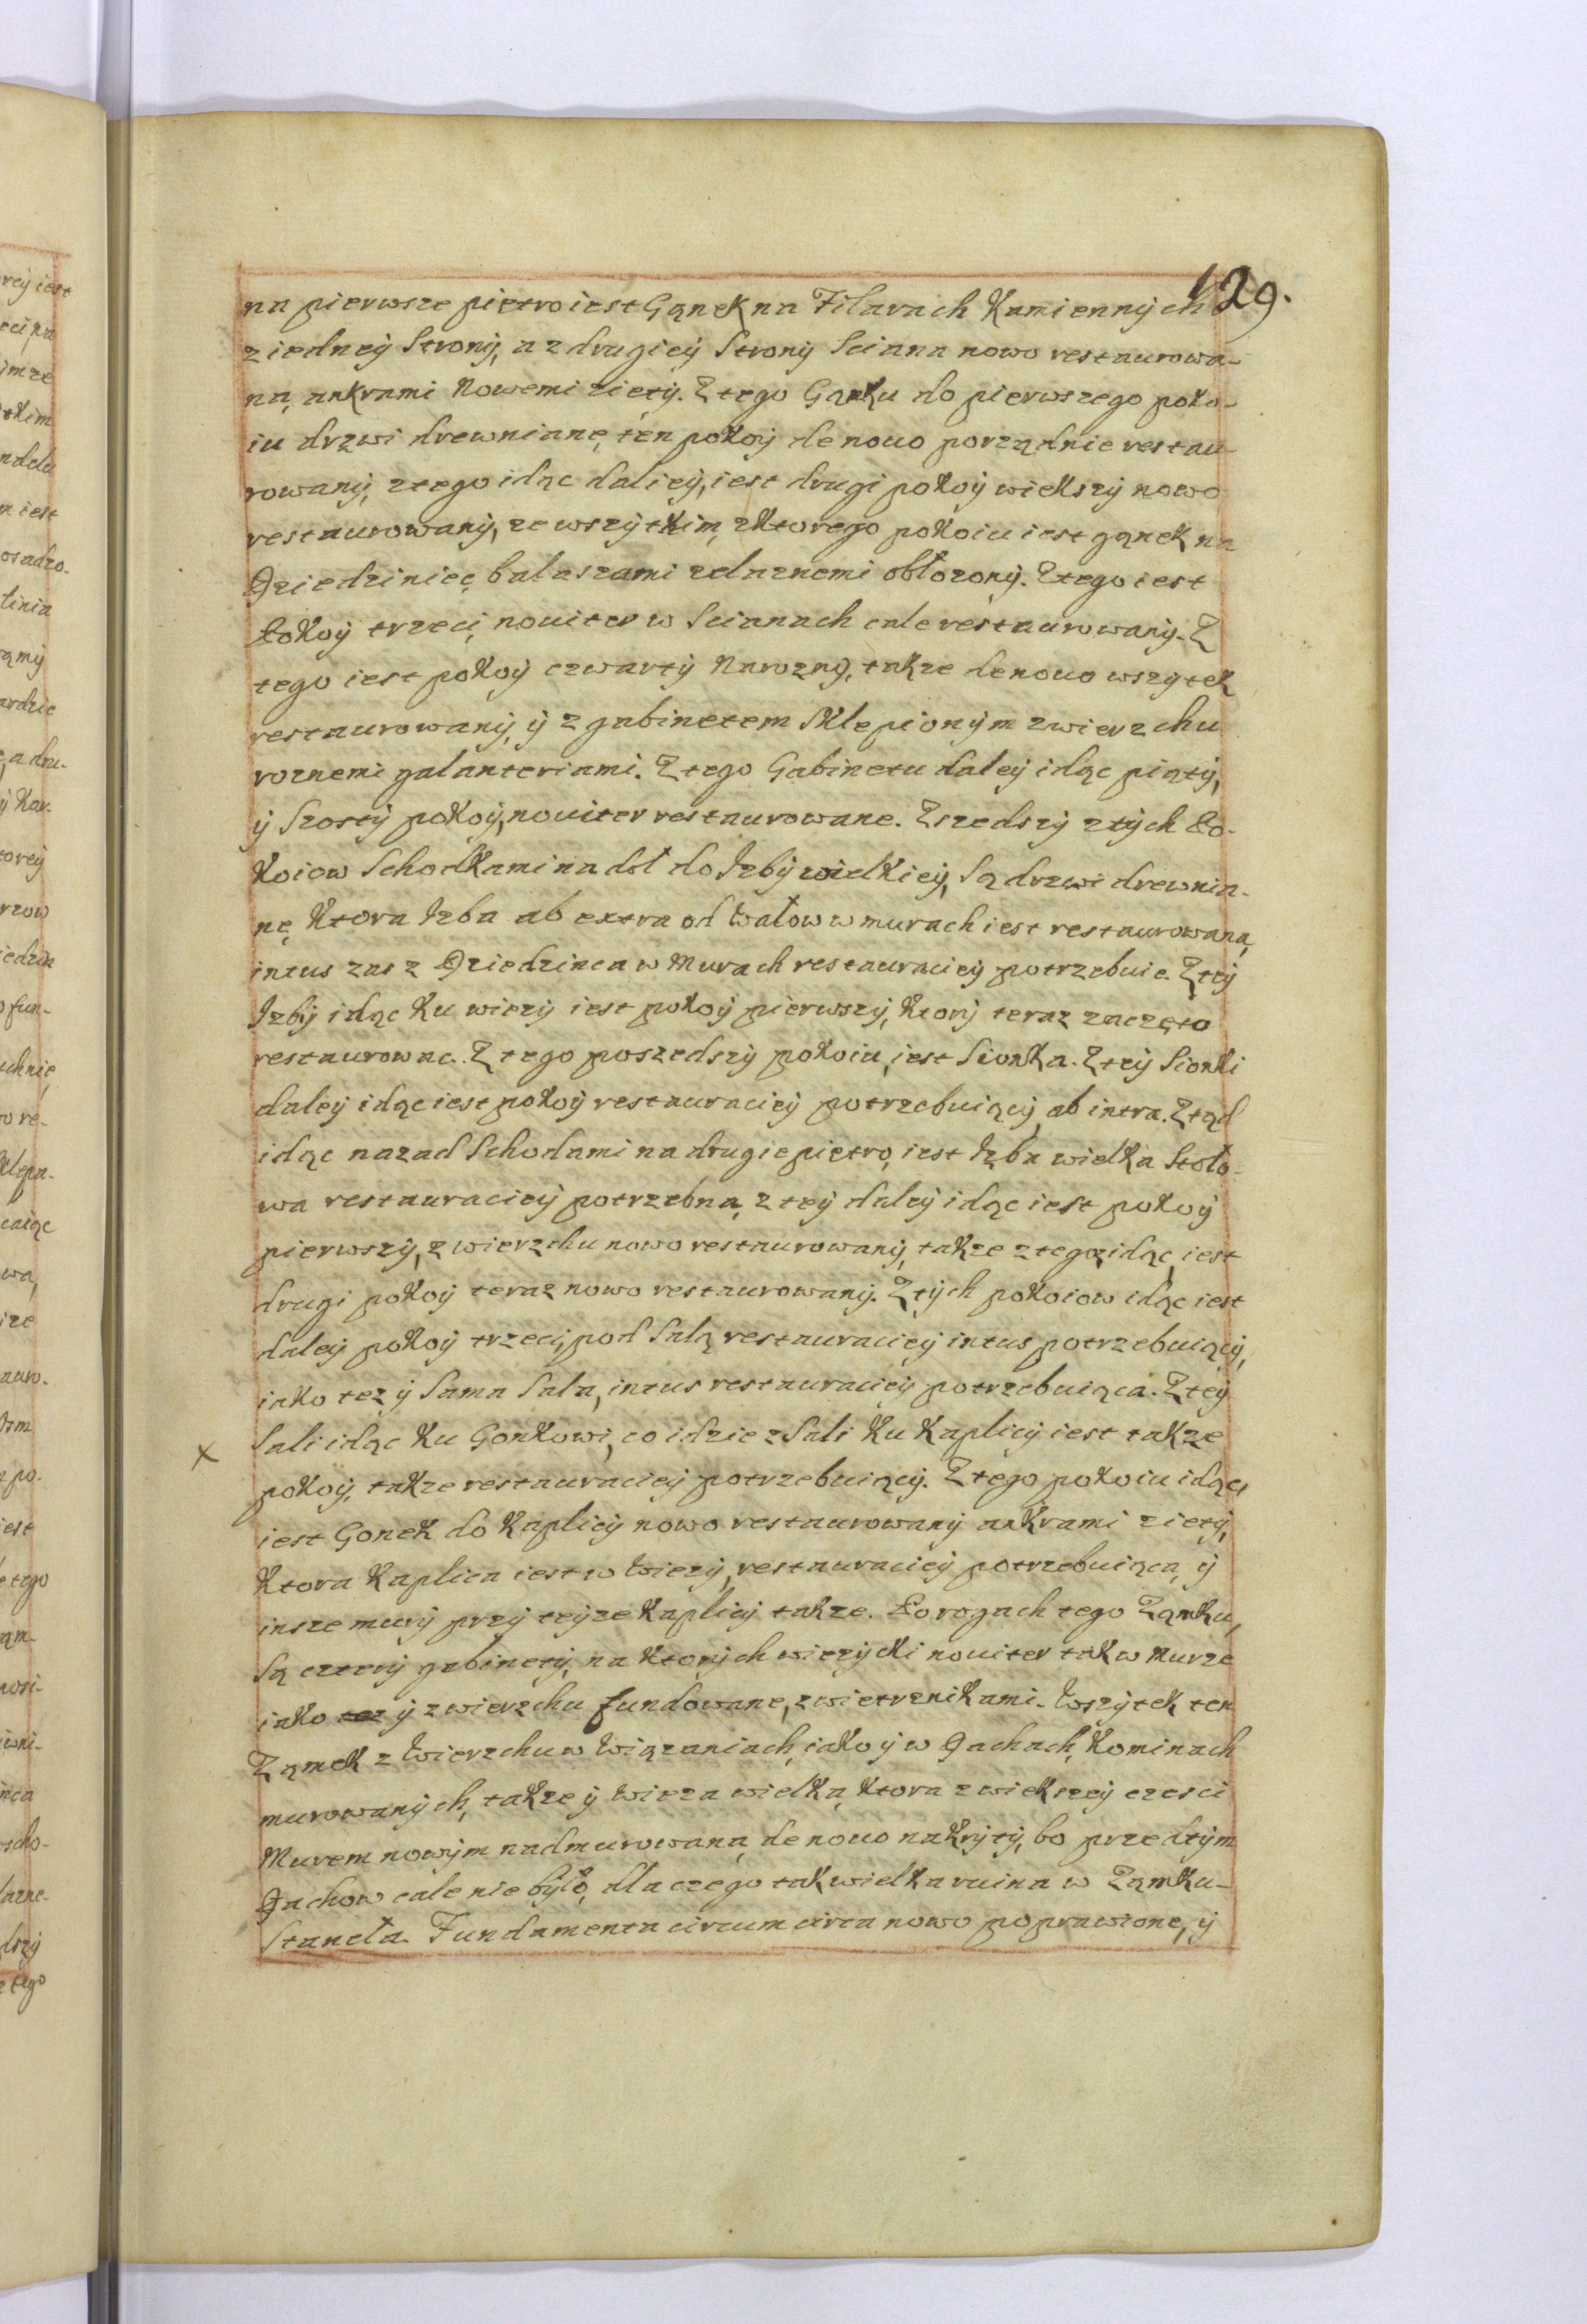 129.
na pierwsze pietro iest Gąnek na Filarach Kamiennÿch
z iedneÿ Stronÿ, a z drugieÿ Stronÿ Sciana nowo restaurowa-
na, ankrami Nowemi zietÿ. Z tego Gąnku do pierwszego poko-
iu drzwi drewniane, ten pokoÿ de nouo porządnie restau-
rowanÿ, z tego idąc dalieÿ, iest drugi pokoÿ wiekszÿ nowo
restaurowanÿ, ze wszÿtkim, z ktorego pokoiu iest gąnek na
Dziedziniec balaszami zelaznemi obłozonÿ. Z tego iest
Pokoÿ trzeci nouiter w Scianach cale restaurowanÿ. Z
tego iest pokoÿ czwartÿ Naroznÿ, takze de nouo wszytek
restaurowanÿ, ÿ z gabinetem Sklepionÿm z wierzchu
roznemi galanteriami. Z tego Gabinetu daleÿ idąc piątÿ,
ÿ Szostÿ pokoÿ, nouiter restaurowane. Zszedszÿ z tÿch Po-
koiow Schodkami na doł do Izbÿ wielkieÿ, Są drzwi drewnia-
ne, Ktora Izba ab extra od Wałow w murach iest restaurowana,
intus zas z Dziedzinca w Murach restauracieÿ potrzebuie. Z teÿ
Izbÿ idąc Ku wiezÿ iest pokoÿ pierwszÿ, Ktorÿ teraz zaczęto
restaurowac. Z tego poszedszÿ pokoiu, iest Sionka. Z teÿ Sionki
daleÿ idąc iest pokoÿ restauracieÿ potrzebuiącÿ, ab intra. Ztąd
idąc nazad Schodami na drugie piętro, iest Izba wielka Stoło-
wa restauracieÿ potrzebna, z teÿ daleÿ idąc iest pokoÿ
pierwszÿ, z wierzchu nowo restaurowanÿ, takze z tego idąc, iest
drugi pokoÿ teraz nowo restaurowanÿ. Z tÿch pokoiow idąc iest
daleÿ pokoÿ trzeci, pod Salą restauracieÿ intus potrzebuiącÿ,
iako tez ÿ Sama Sala, intus restauracieÿ potrzebuiąca. Z teÿ
x Sali idąc Ku Gonkowi, co idzie z Sali Ku Kaplicÿ iest takze
pokoÿ, takze restauracieÿ potrzebuiącÿ. Z tego pokoiu idąc,
iest Gonek do Kaplicÿ nowo restaurowanÿ ankrami zietÿ,
Ktora Kaplica iest w Wiezÿ, restauracieÿ potrzebuiąca, ÿ
insze murÿ przÿ teÿze Kaplicÿ takze. Po rogach tego Zamku,
Są czterÿ gabinetÿ, na Ktorÿch wiezÿcki nouiter tak w Murze
iako tez ÿ z wierzchu fundowane, z wietrznikami. Wszÿtek ten
Zamek z Wierzchu w Wiązaniach, iako ÿ w Dachach, Kominach
murowanÿch, takze ÿ Wieza wielka, Ktora z wiekszeÿ czesci
Murem nowÿm nadmurowana, de nouo nakrÿtÿ, bo przedtÿm
Dachow cale nie bÿło, dla czego tak wielka ruina w Zamku-
Stanęła. Fundamenta circum circa nowo poprawione, ÿ